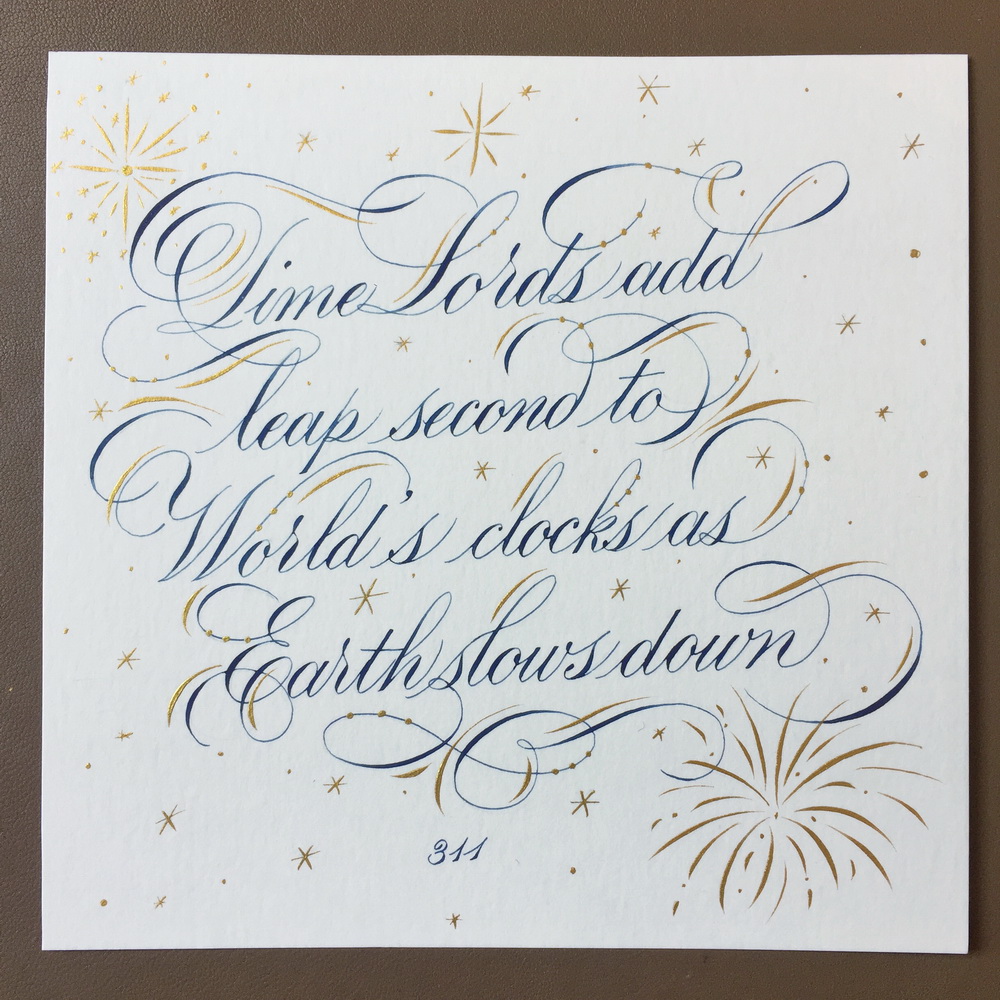 Time Lords add
leap second to
World's clocks as
Earth slows down
311